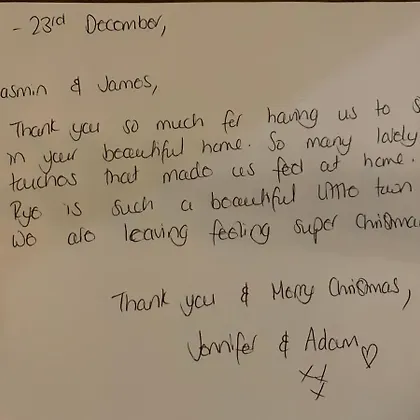 - 23rd December,
asmin & James,
Thank you so much for having us to s
in your beautiful home. So many lovely
touches that made us feel at home.
Rye is such a beautiful little town
we are leaving feeling super Christma
Thank you & Merry Christmas,
Jennifer & Adam ♡
xx
x